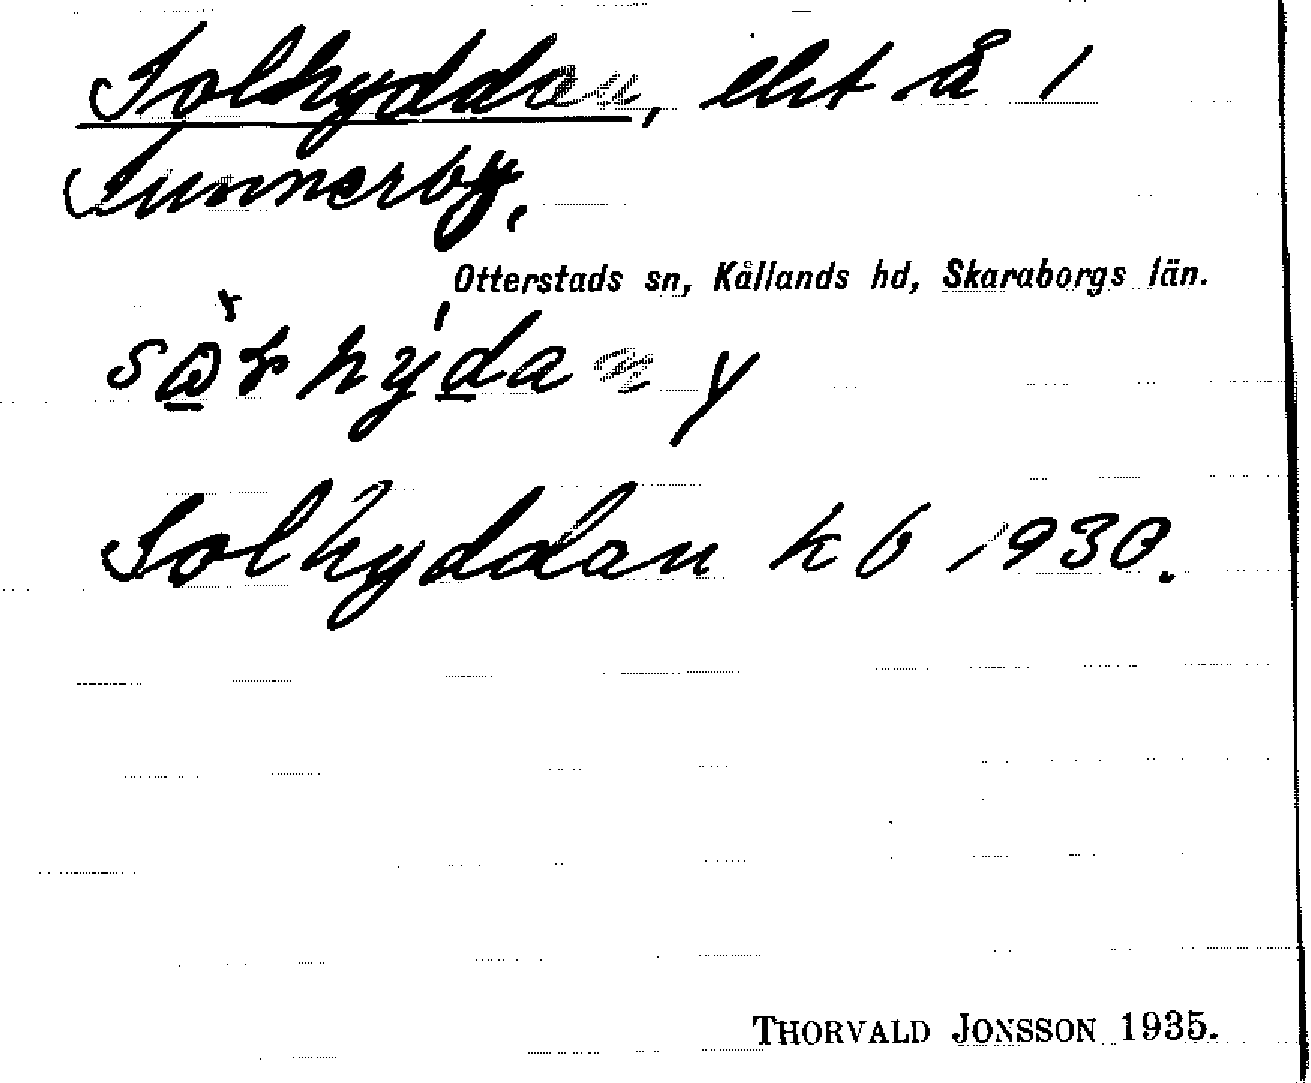 Solhyddan, lht å 1
Sunnerby,
Otterstads sn, Kållands hd, Skaraborgs län.
Solhyddan kb 1930.
THORVALD JONSSON 1935.